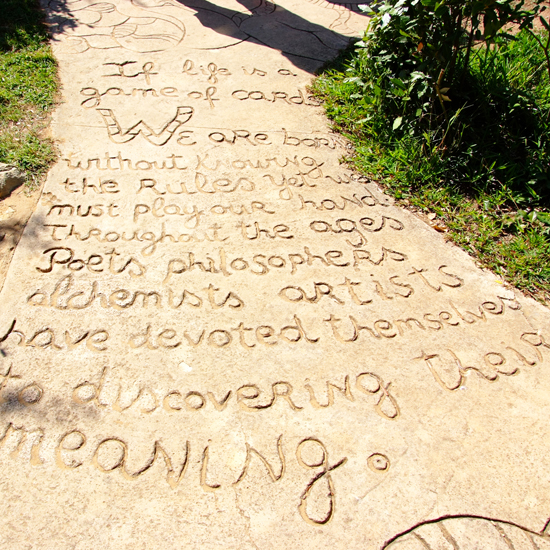 If life is a
game of cards
We are born
without knowing
the Rules Yet we
must play our hand
Throughout the ages
Poets philosophers
alchemists artists
have devoted themselves
to discovering their
meaning.